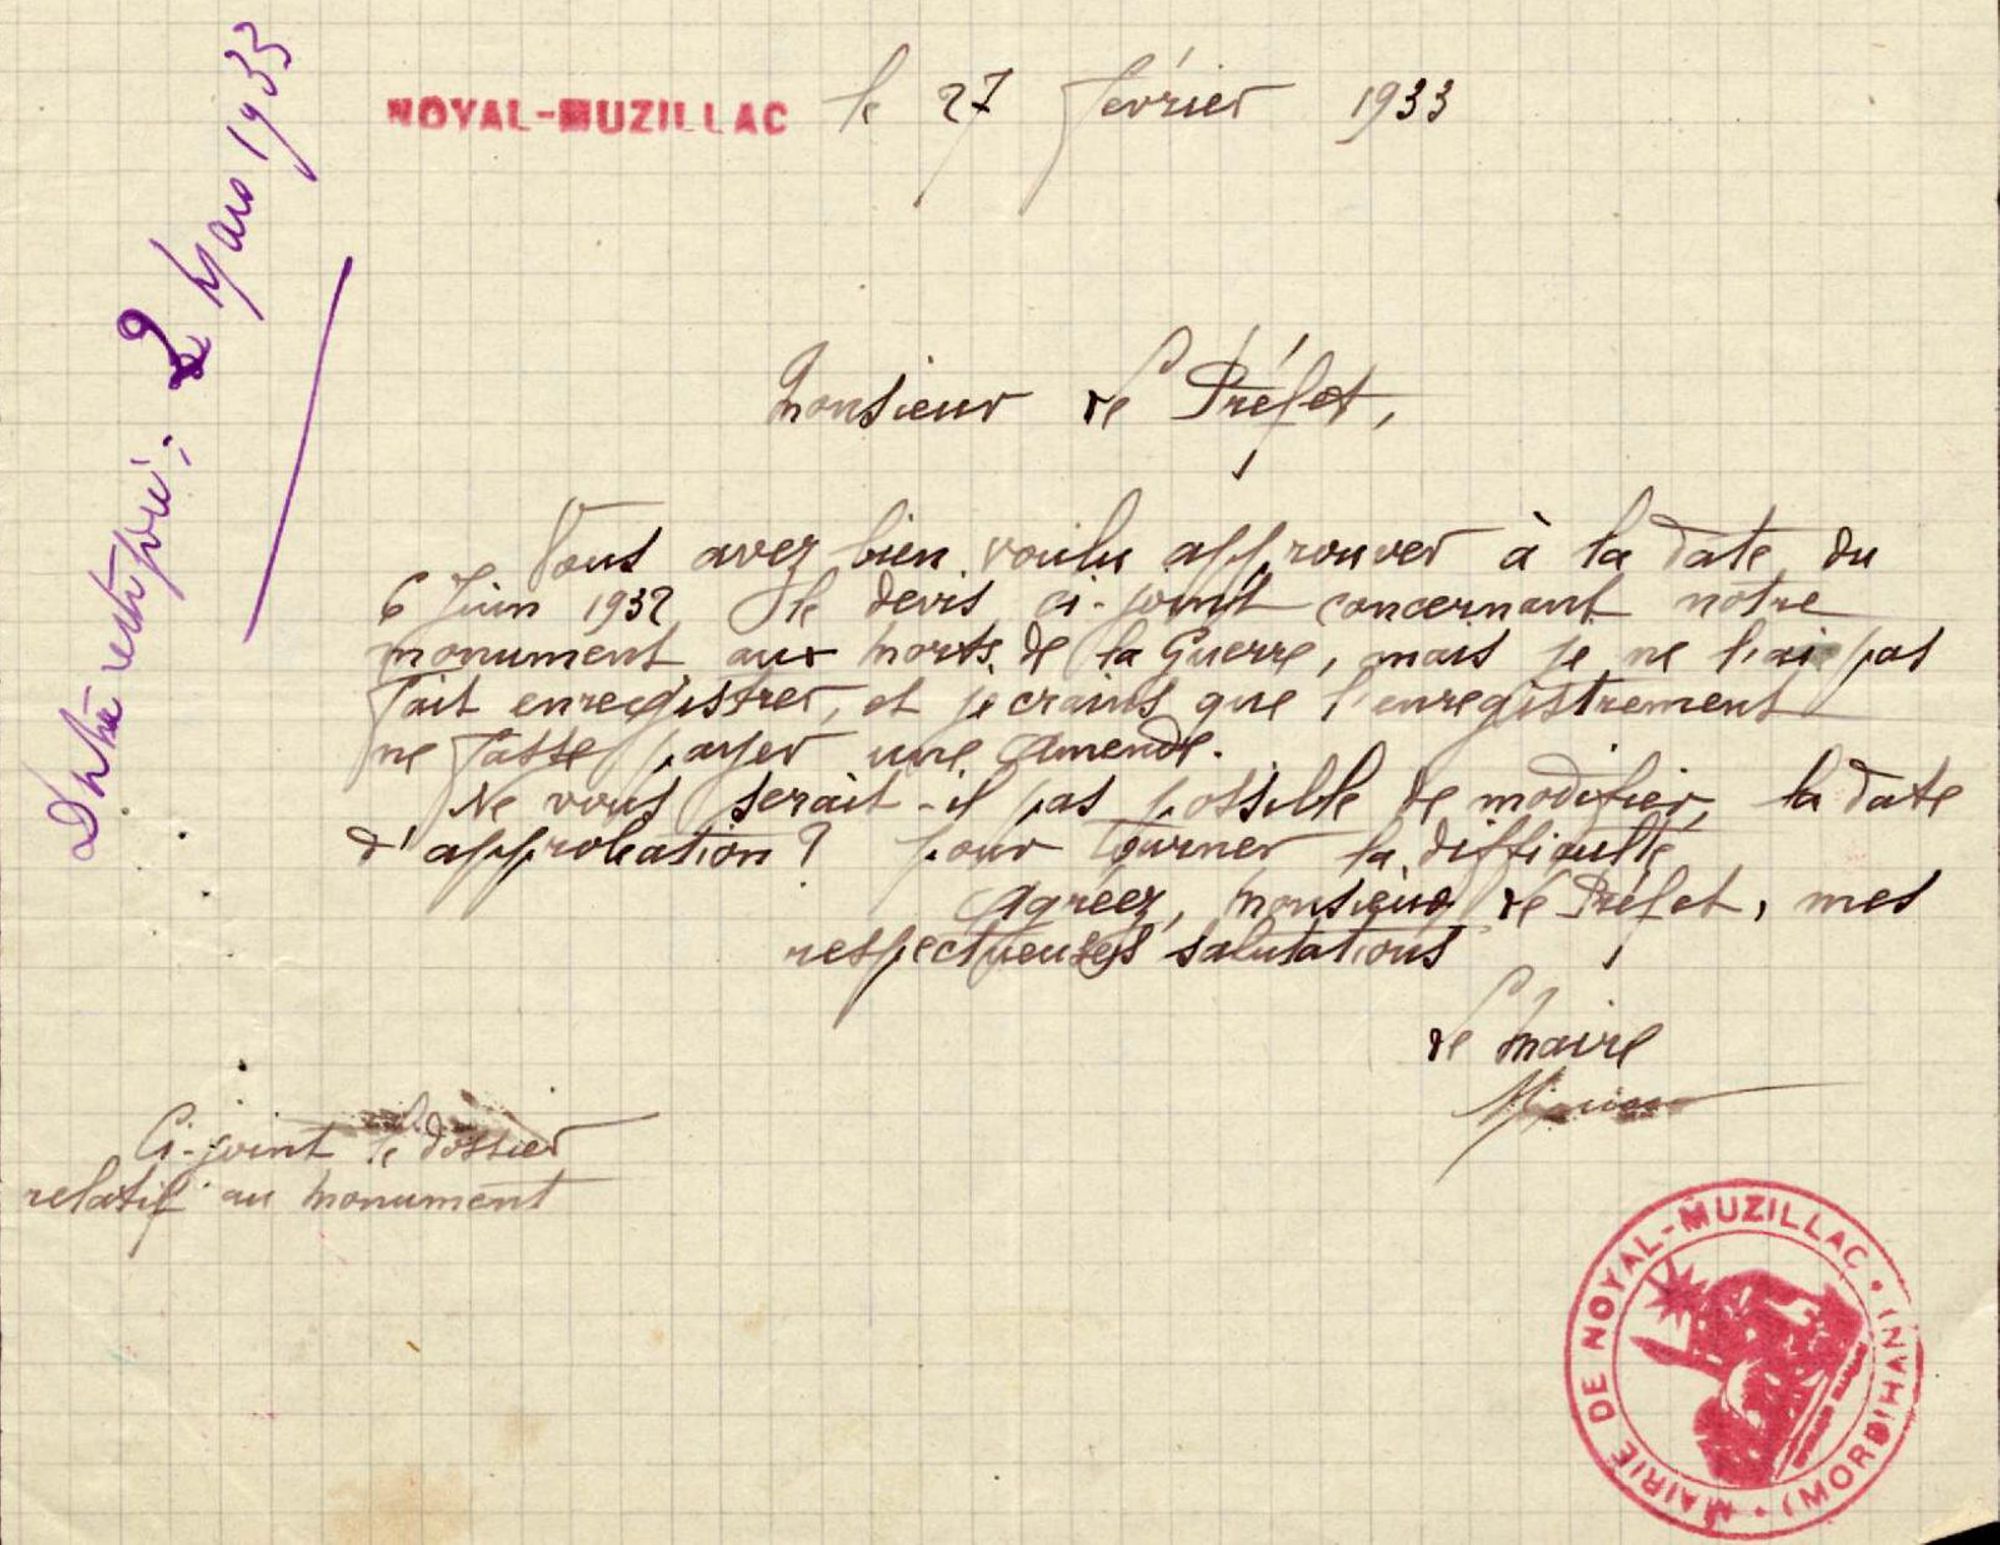 NOYAL-MUZILLAC le 27 février 1933
Monsieur le Préfet,
Vous avez bien voulu approuver à la date du
6 Juin 1932 le devis ci-joint concernant notre
monument aux morts de la Guerre, mais je ne l'ai pas
fait enregistrer, et je crains que l'enregistrement
ne fasse payer une amende.
Ne vous serait-il pas possible de modifier la date
d'approbation ? pour tourner la difficulté
Agréez, Monsieur le Préfet, mes
respectueuses salutations
Le Maire
Ci-joint le dossier
relatif au monument
MAIRIE DE NOYAL-MUZILLAC • (MORBIHAN) •
rectifié : 2 Mars 1933